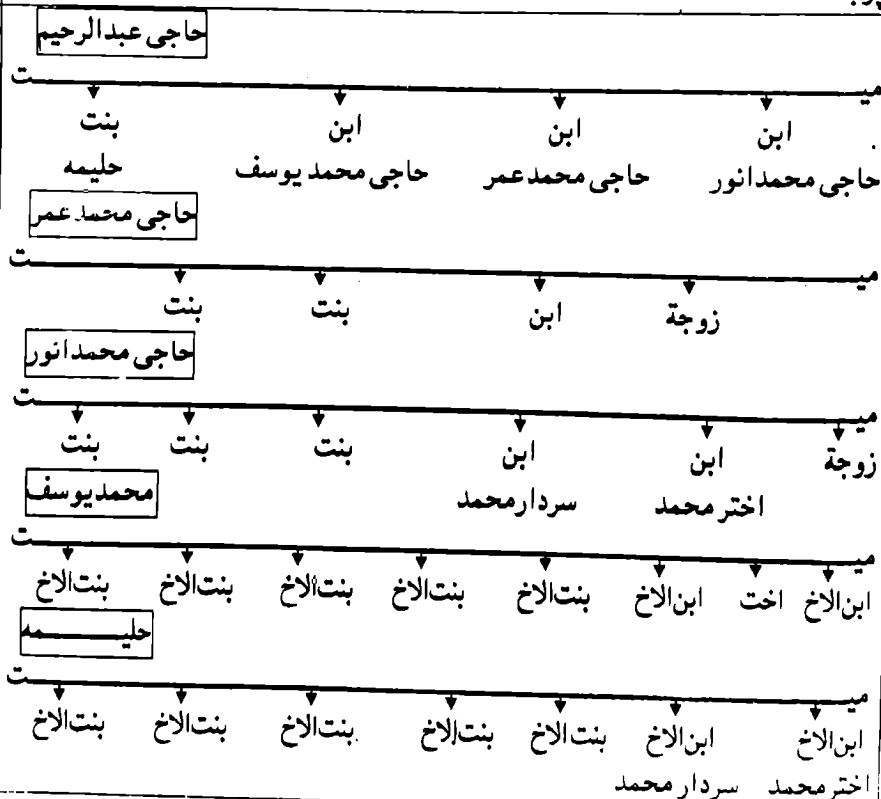 حاجی عبدالرحیم
میـــــت
ابن ابن ابن بنت
حاجی محمدانور حاجی محمدعمر حاجی محمدیوسف حلیمه
حاجی محمدعمر
میـــــت
زوجة ابن بنت بنت
حاجی محمدانور
میـــــت
زوجة ابن ابن بنت بنت بنت
اخترمحمد سردارمحمد
محمدیوسف
میـــــت
ابن الاخ اخت ابن الاخ بنت الاخ بنت الاخ بنت الاخ بنت الاخ بنت الاخ
حلیـــــمه
میـــــت
ابن الاخ ابن الاخ بنت الاخ بنت الاخ بنت الاخ بنت الاخ بنت الاخ
اخترمحمد سردارمحمد